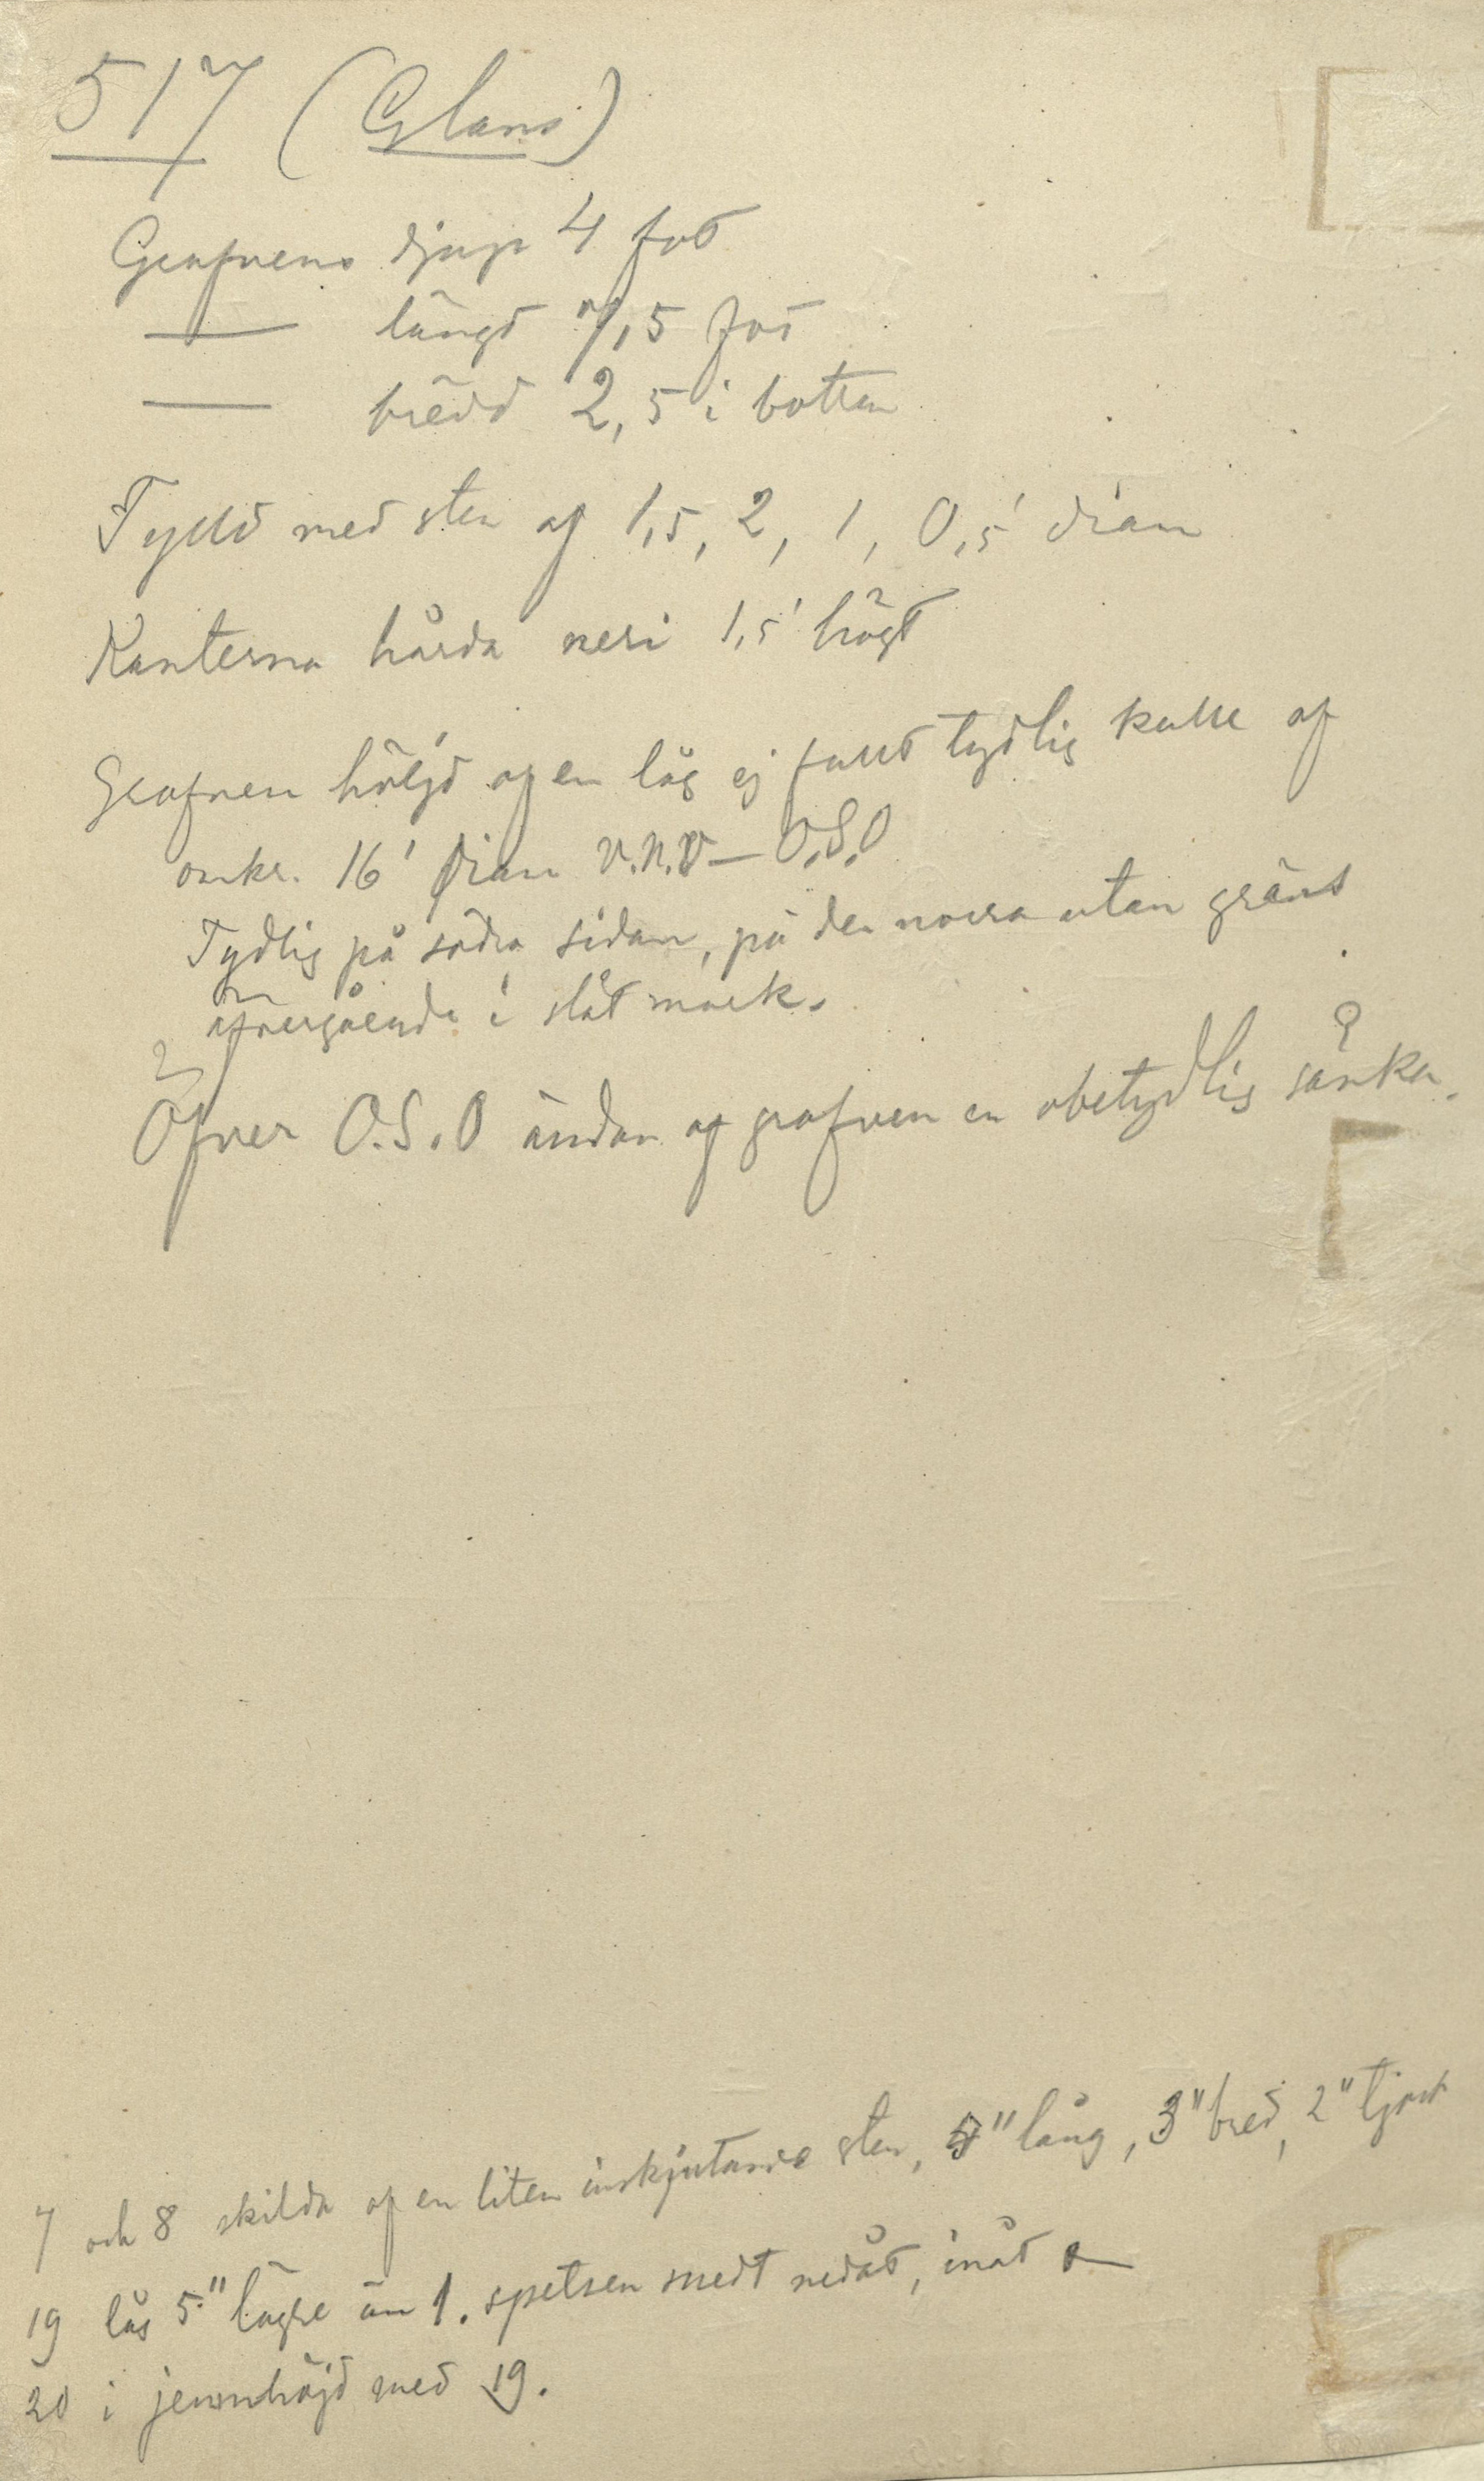 517 (Glans)
Grafvens djup 4 fot
— längd 7,5 fot
— bredd 2,5 i botten
Fylld med sten af 1,5, 2, 1, 0,5' diam
Kanterna hårda neri 1,5' högt
Grafven höljd af en låg ej fullt tydlig kulle af
omkr. 16' diam V.N.V — O.S.O
Tydlig på södra sidan, på den norra utan gräns
öfvergående i slät mark.
Öfver O.S.O ändan af grafven en obetydlig sänka.
7 och 8 skilda af en liten inskjutande sten, " lång, 3" bred, 2" tjock
19 låg 5" lägre än 1. spetsen snedt nedåt, inåt
20 i jemnhöjd med 19.